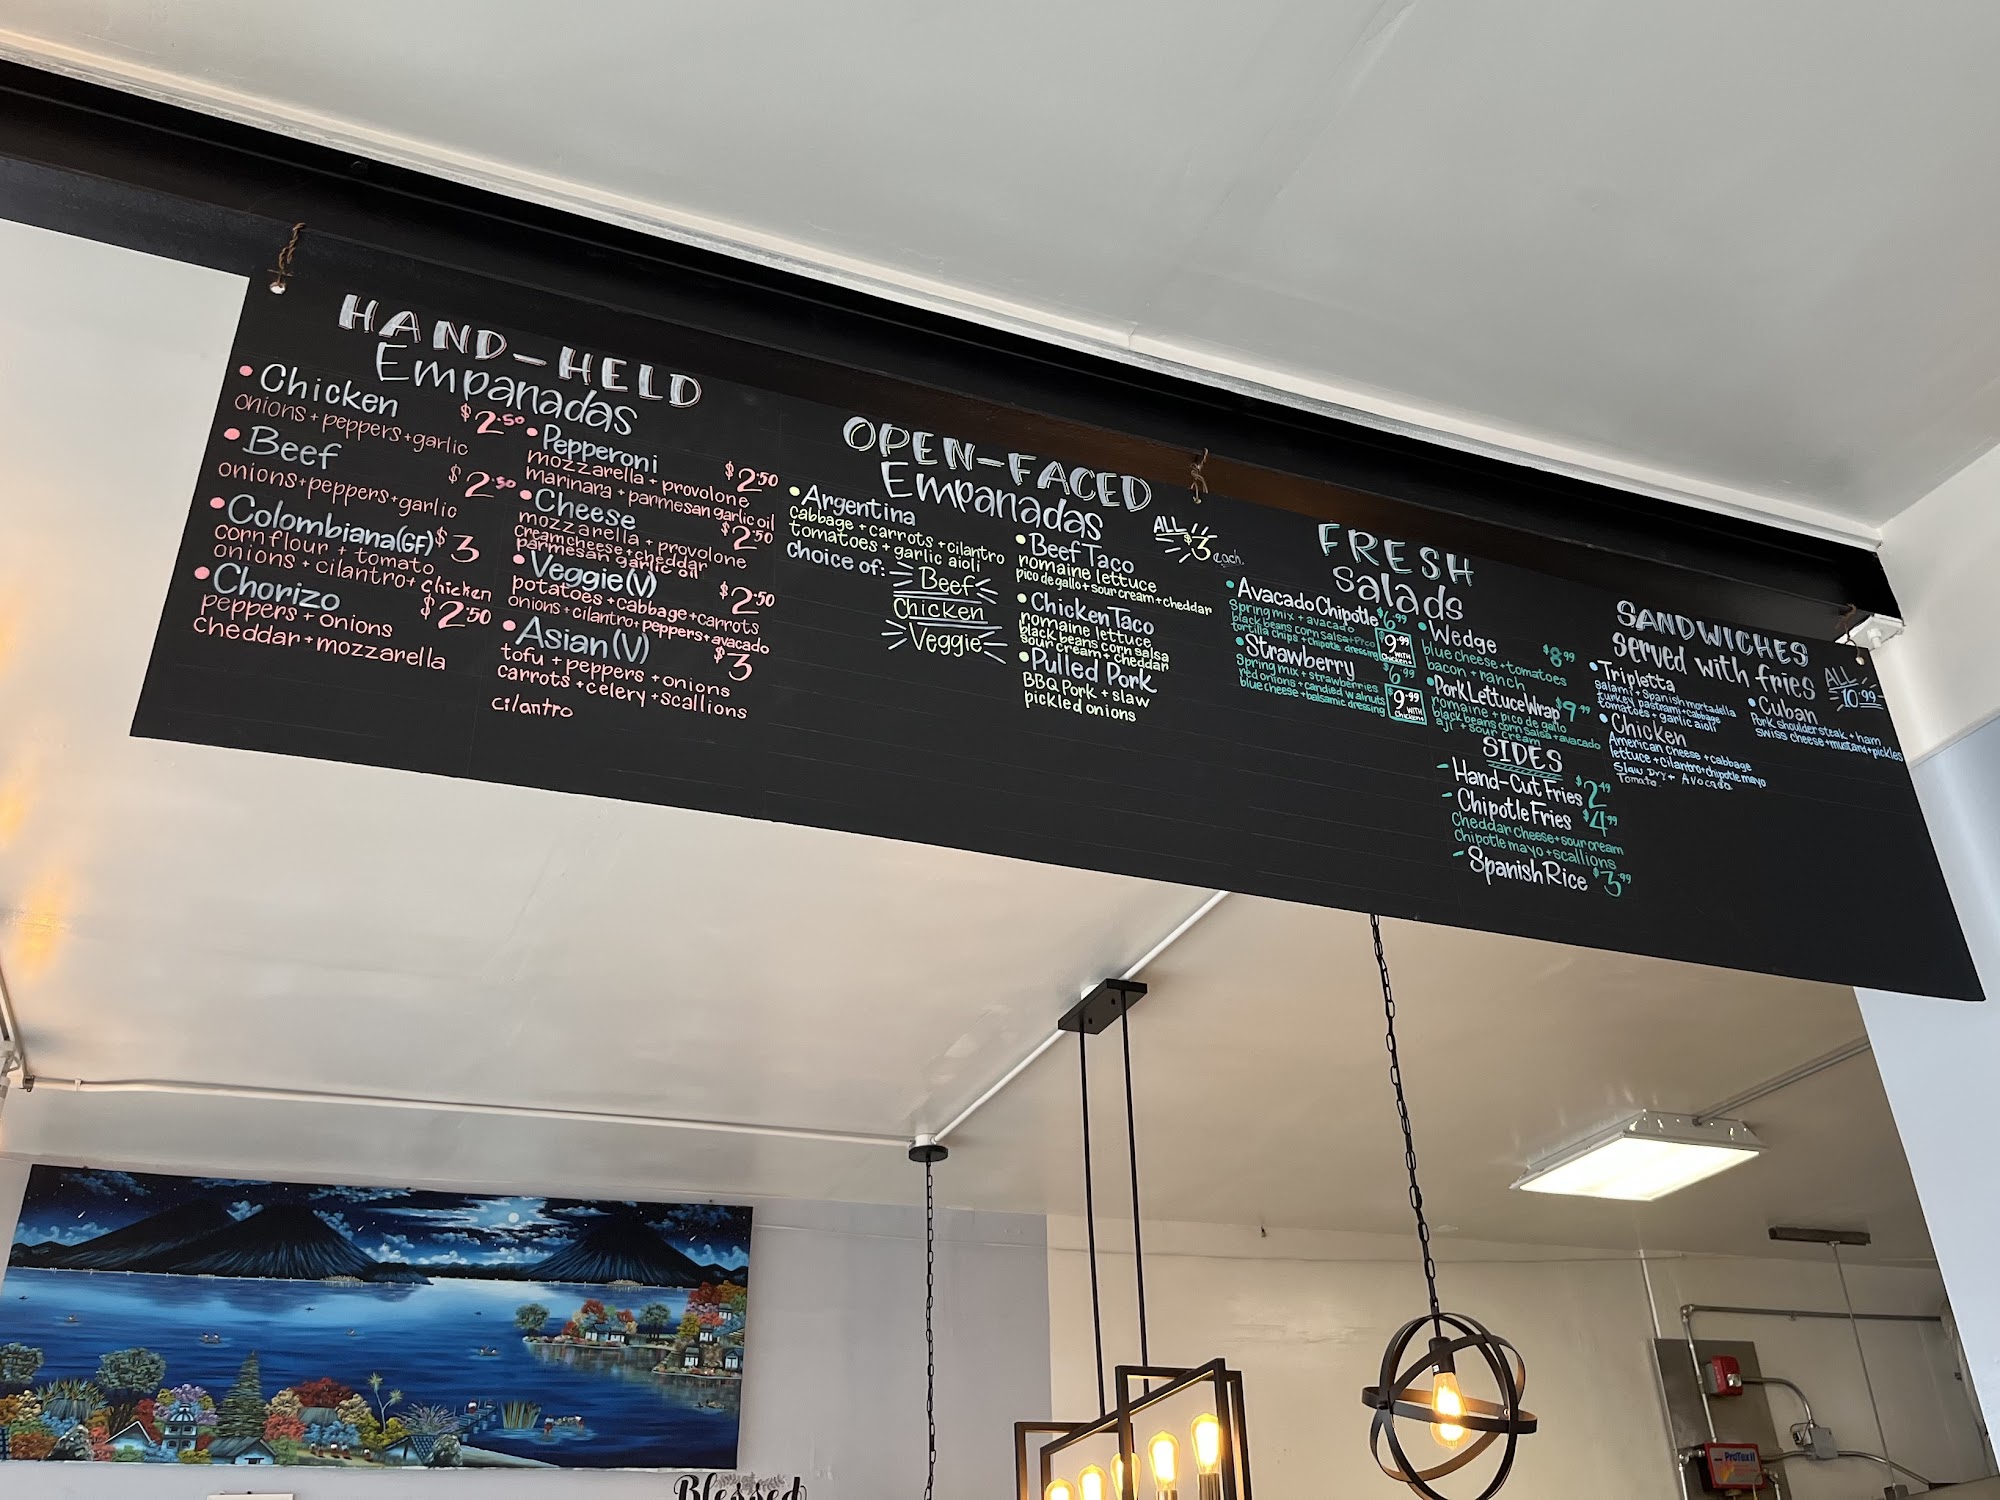 HAND-HELD
Empanadas
• Chicken $2.50
onions + peppers + garlic
• Beef $2.50
onions + peppers + garlic
• Colombiana (GF) $3
corn flour + tomato
onions + cilantro + chicken
• Chorizo $2.50
peppers + onions
cheddar + mozzarella
• Pepperoni $2.50
mozzarella + provolone
marinara + parmesan garlic oil
• Cheese $2.50
mozzarella + provolone
cream cheese + cheddar
parmesan garlic oil
• Veggie (V) $2.50
potatoes + cabbage + carrots
onions + cilantro + peppers + avocado
• Asian (V) $3
tofu + peppers + onions
carrots + celery + scallions
cilantro
OPEN-FACED
Empanadas
ALL $3 each
• Argentina
cabbage + carrots + cilantro
tomatoes + garlic aioli
choice of: Beef
Chicken
Veggie
• Beef Taco
romaine lettuce
pico de gallo + sour cream + cheddar
• Chicken Taco
romaine lettuce
black beans corn salsa
sour cream + cheddar
• Pulled Pork
BBQ Pork + slaw
pickled onions
FRESH
Salads
• Avocado Chipotle $6.99
spring mix + avocado
black beans corn salsa + Pico
tortilla chips + chipotle dressing
$9.99 WITH Chicken +
• Strawberry $6.99
spring mix + strawberries
red onions + candied walnuts
blue cheese + balsamic dressing
$9.99 WITH Chicken +
• Wedge $8.99
blue cheese + tomatoes
bacon + ranch
• Pork Lettuce Wrap $9.99
romaine + pico de gallo
black beans corn salsa + avocado
aji + sour cream
SIDES
- Hand-Cut Fries $2.49
- Chipotle Fries $4.99
Cheddar cheese + sour cream
Chipotle mayo + scallions
- Spanish Rice $3.99
SANDWICHES
Served with fries
ALL $10.99
• Tripletta
salami + Spanish mortadella
turkey pastrami + cabbage
tomatoes + garlic aioli
• Chicken
American cheese + cabbage
lettuce + cilantro + chipotle mayo
Slaw Dry + Avocado
Tomato.
• Cuban
Pork shoulder steak + ham
swiss cheese + mustard + pickles
Blessed
ProTex II